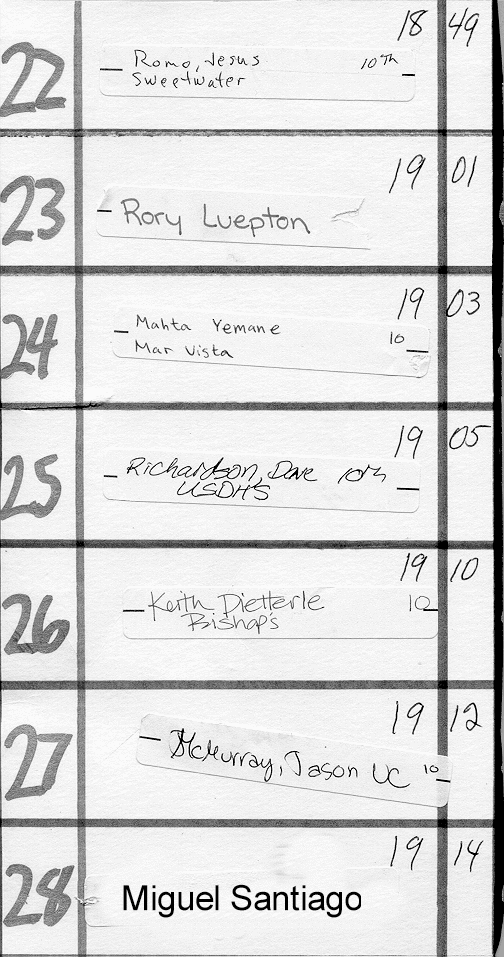 22 Romo, Jesus 10th 18 49
Sweetwater
23 Rory Luepton 19 01
24 Mahta Yemane 10 19 03
Mar Vista
25 Richardson, Dave 10th 19 05
USDHS
26 Keith Dietterle 10 19 10
Bishop's
27 McMurray, Jason UC 10 19 12
28 Miguel Santiago 19 14